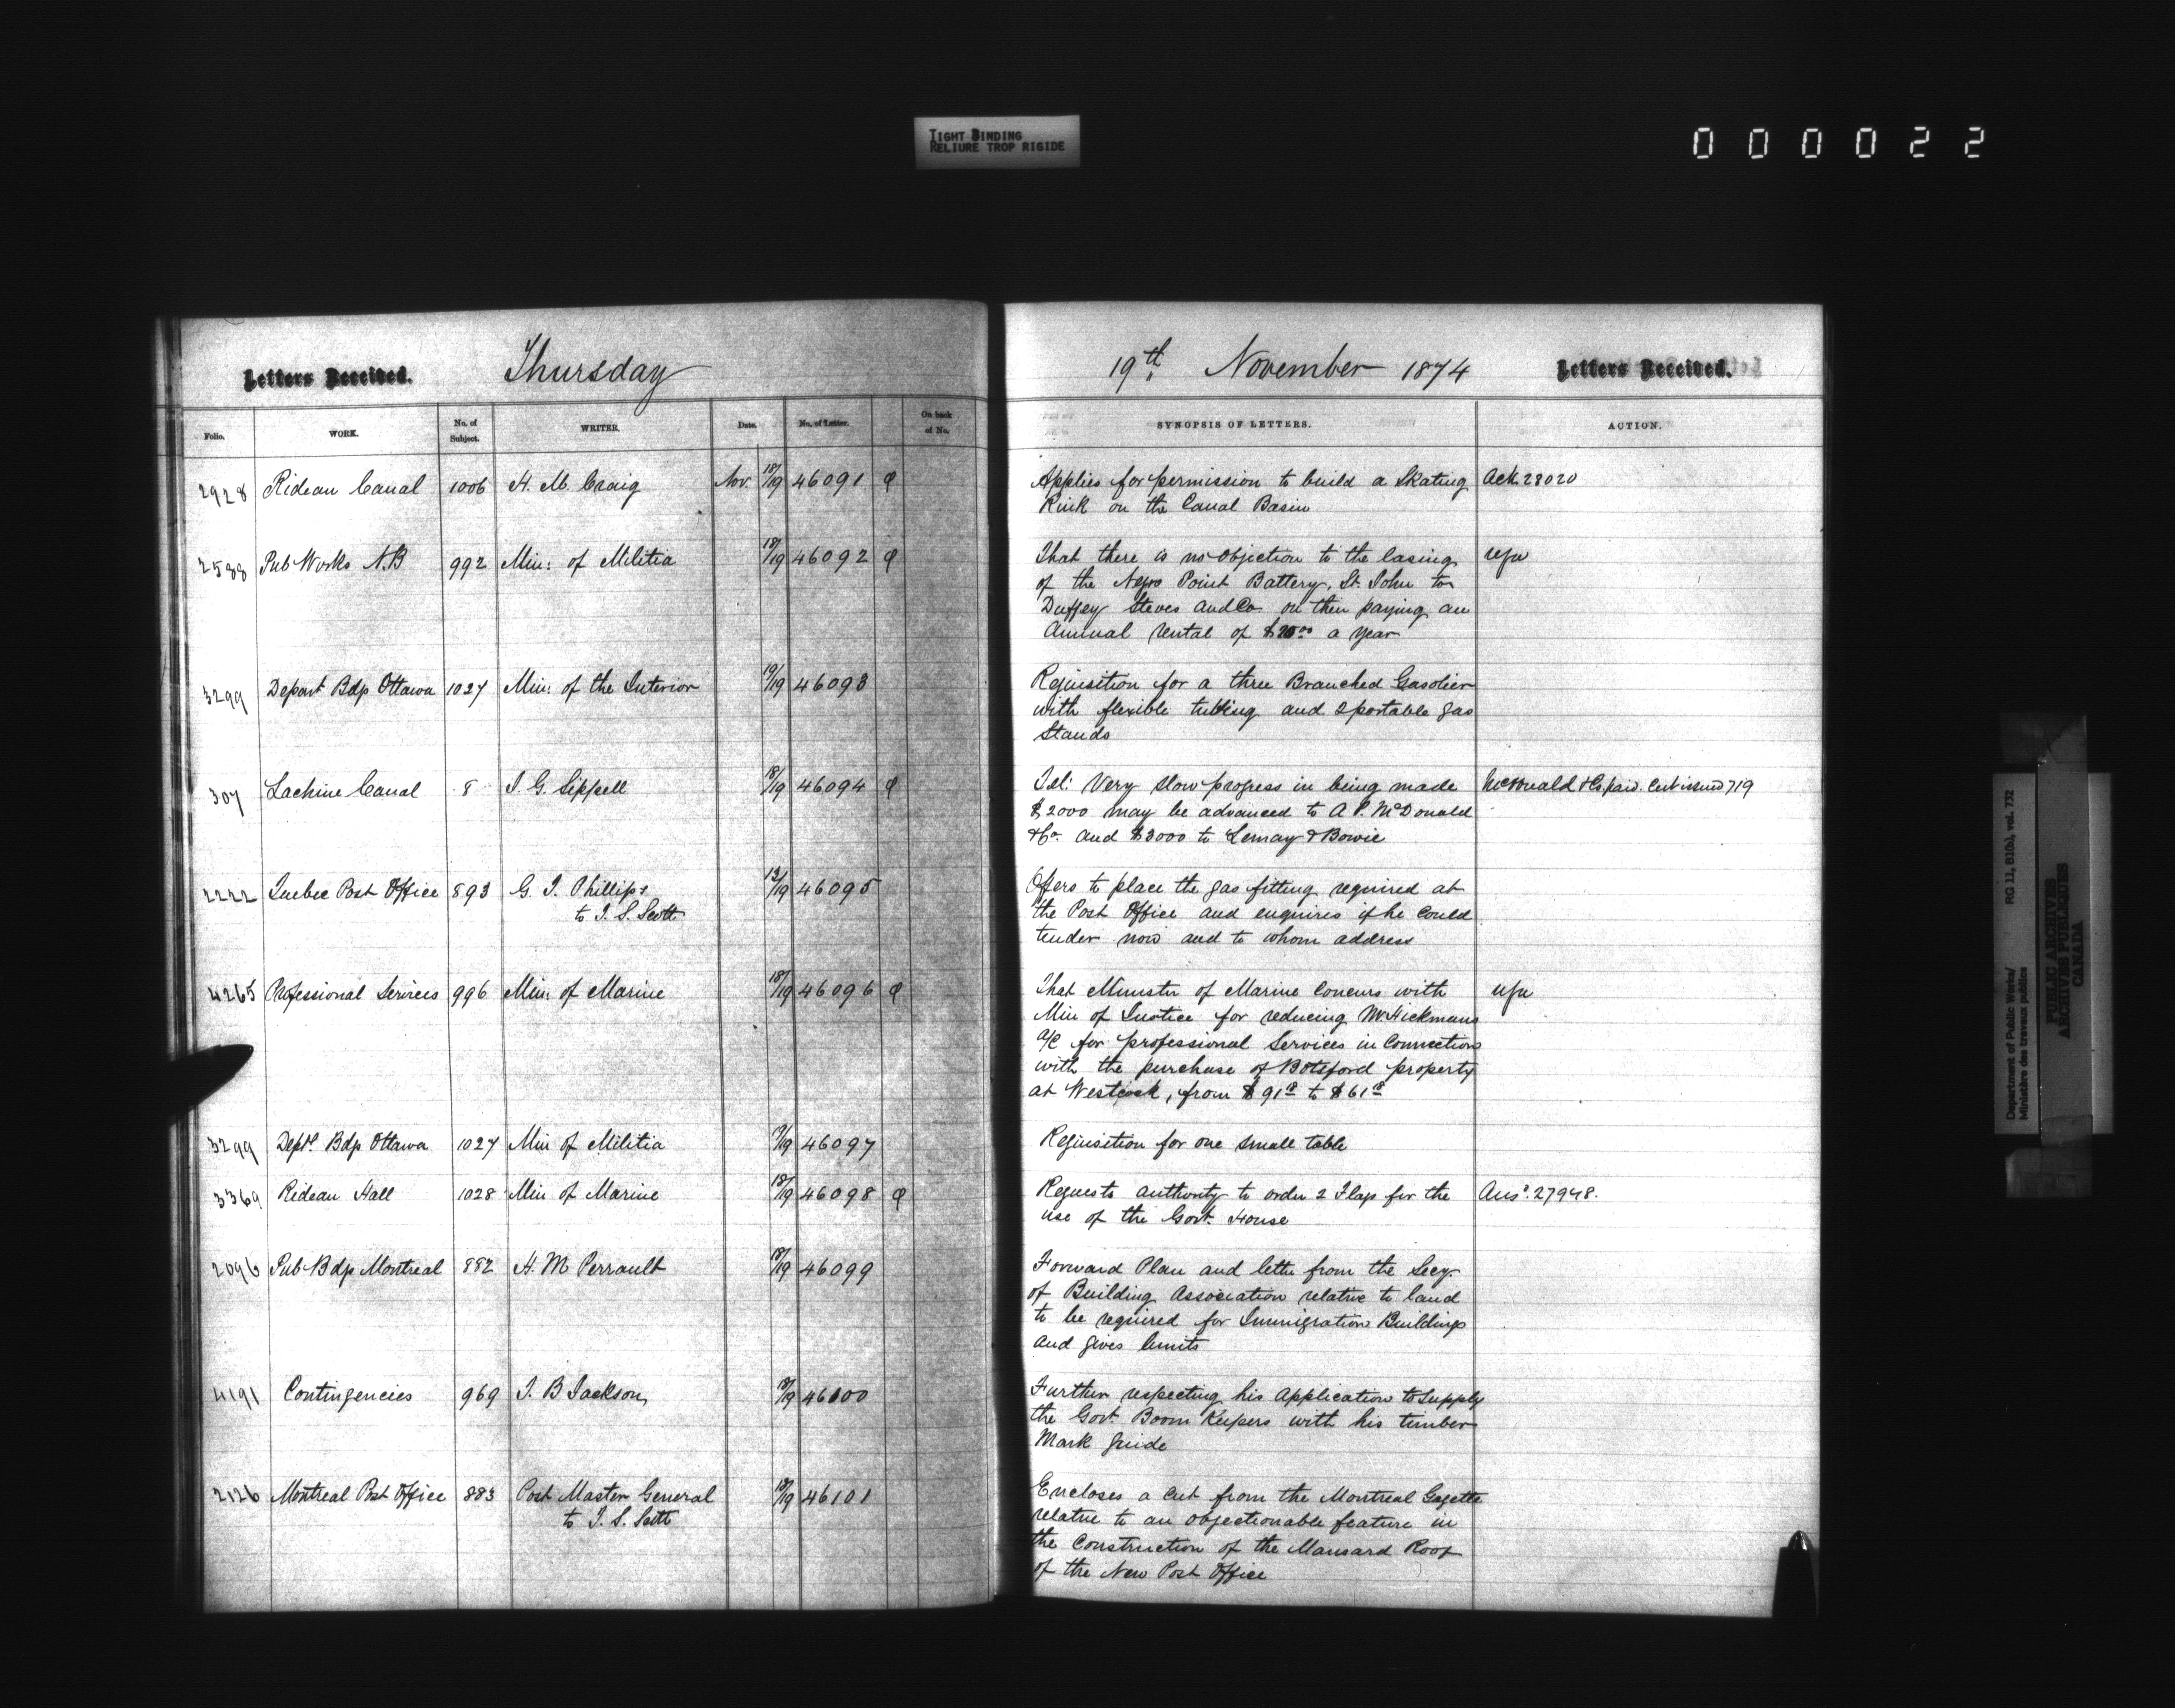 TIGHT BINDING
RELIURE TROP RIGIDE
000022
Letters Received. Thursday
Folio. WORK. No. of Subject. WRITER. Date. No. of Letter. On back of No.
2928 Rideau Canal 1006 H. M. Craig Nov. 18/19 46091
2588 Pub Works N.B 992 Min: of Militia 18/19 46092
3299 Depart Bdgs Ottawa 1027 Min: of the Interior 19/19 46093
307 Lachine Canal 8 J. G. Sippell 18/19 46094
2222 Quebec Post Office 893 G. J. Phillips 13/19 46095
to T. S. Scott
4265 Professional Services 996 Min: of Marine 18/19 46096
3299 Deptl Bdgs Ottawa 1027 Min of Militia 19/19 46097
3369 Rideau Hall 1028 Min of Marine 18/19 46098
2096 Pub Bdgs Montreal 882 H. M Perrault 18/19 46099
4191 Contingencies 969 J. B Jackson 18/19 46100
2126 Montreal Post Office 883 Post Master General 18/19 46101
to T. S. Scott
19th November 1874 Letters Received.
SYNOPSIS OF LETTERS. ACTION.
Applies for permission to build a Skating Ack 28020
Rink on the Canal Basin
That there is no objection to the leasing
of the Negro Point Battery, St. John to
Duffey Steves and Co. on their paying an
annual rental of a year
Requisition for a three Branched Gasolier
with flexible tubing and 2 portable gas
Stands
Tel: Very slow progress in being made McDonald & Co. paid. Cert issued 719
$2000 may be advanced to A. P. McDonald
& Co. and $3000 to Lemay & Bowie
Offers to place the gas fitting required at
the Post Office and enquires if he could
tender now and to whom address
That Minister of Marine Concurs with
Min of Justice for reducing Mr. Hickmans
a/c for professional Services in Connection
with the purchase of Botsford property
at Westcock, from $91 18 to $61 18
Requisition for one small table
Requests authority to order 2 Flags for the Ansd. 27948.
use of the Govt. House
Forward Plan and letter from the Secy.
of Building Association relative to land
to be required for Immigration Buildings
and gives limits
Further respecting his Application to supply
the Govt Boom Keepers with his timber
Mark guide
Encloses a cut from the Montreal Gazette
relative to an objectionable feature in
the Construction of the Mansard Roof
of the New Post Office
Department of Public Works/ RG 11, B1(b), vol. 732
Ministère des travaux publics
PUBLIC ARCHIVES
ARCHIVES PUBLIQUES
CANADA